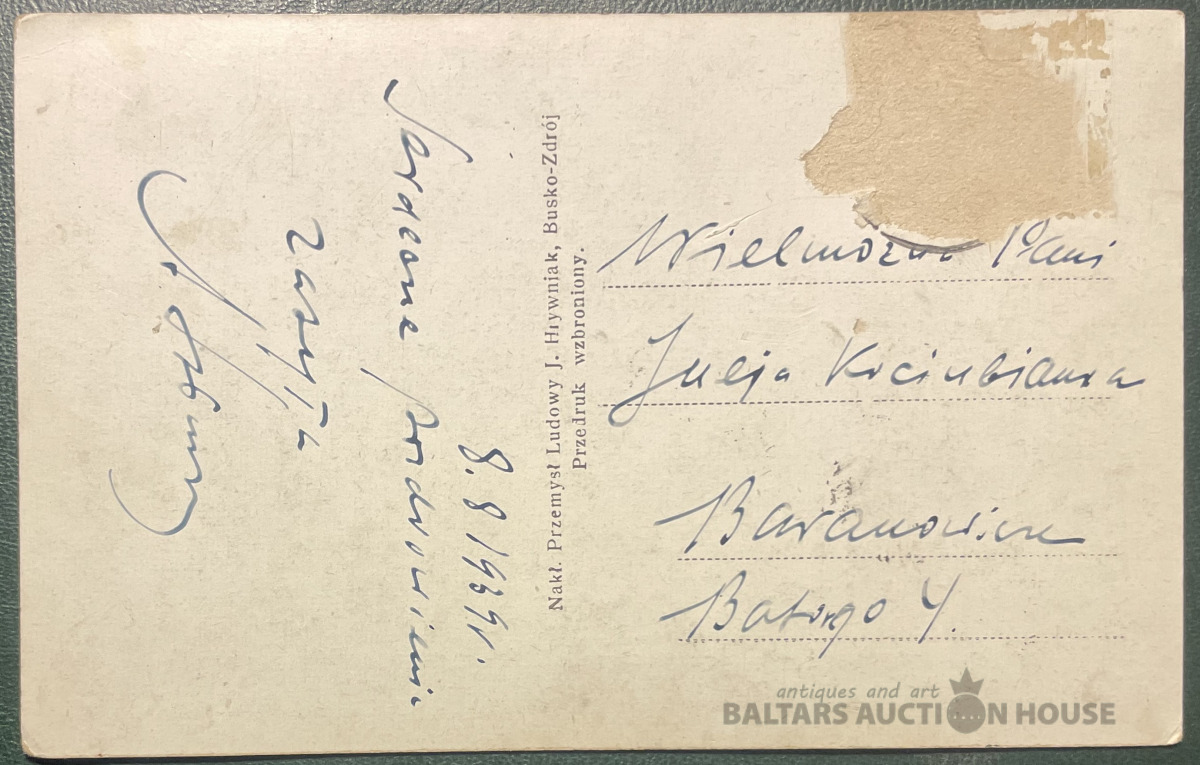 8. 8 1939 r.
Serdeczne pozdrowienia
zasyła
Nakł. Przemysł Ludowy J. Hrywniak, Busko-Zdrój
Przedruk wzbroniony.
Wielmożna Pani
Julja
Baranowicze
Batorego 4.
antiques and art
BALTARS AUCTION HOUSE